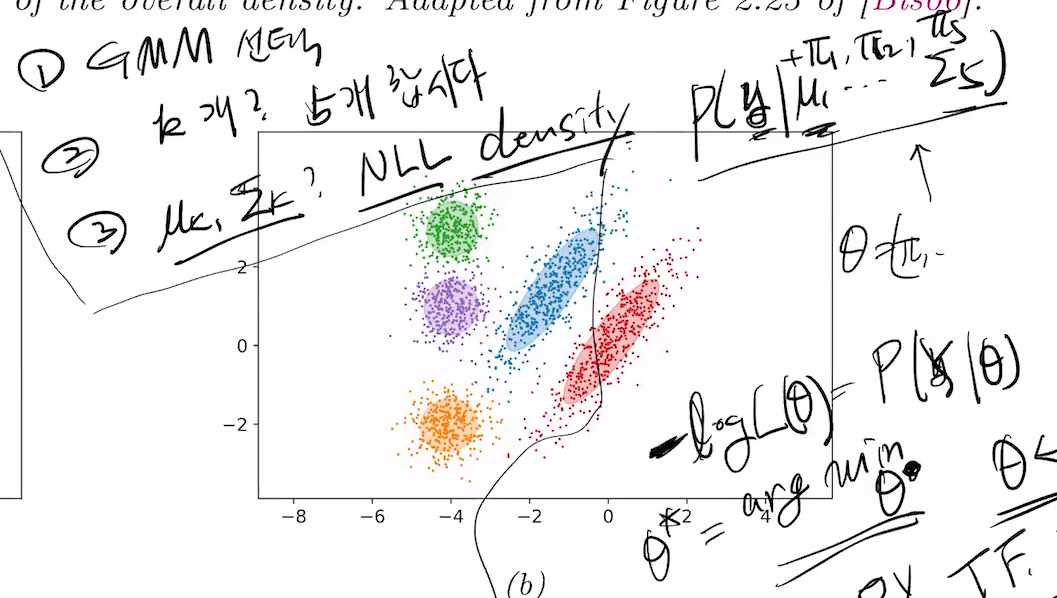 of the overall density. Adapted from Figure 2.23 of [Bis06].
① GMM 선택
② k개? 5개 합시다
③ μk, Σk? NLL density
+π1, π2, π5
P(y|μ1 ... Σ5)
θ = {π1..
-log L(θ) = P(y|θ)
θ* = argmin θ
θ <
TF.
2
0
−2
−8 −6 −4 −2 0 2 4
(b)